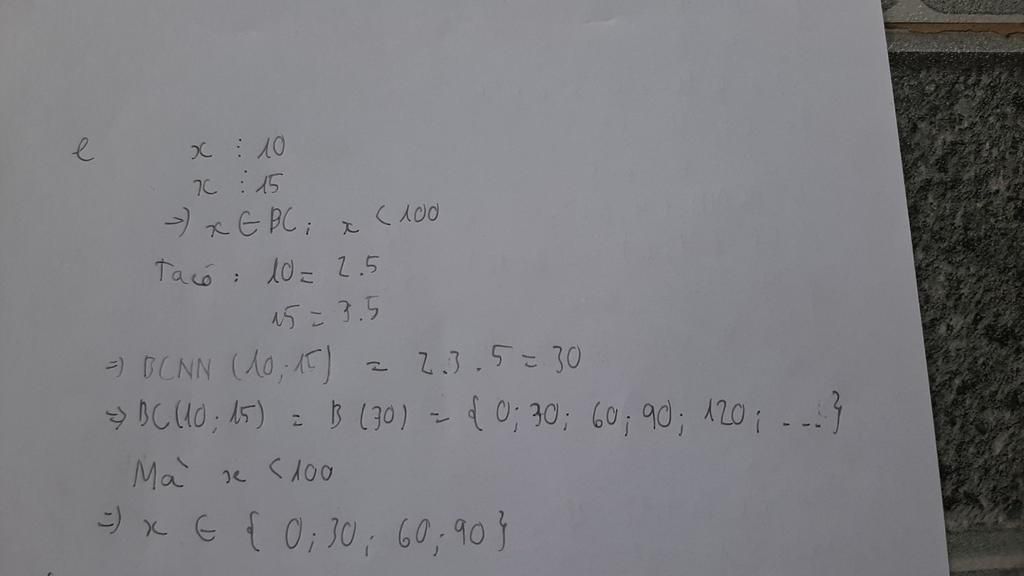 e x ⋮ 10
x ⋮ 15
=> x ∈ BC; x < 100
Ta có : 10 = 2.5
15 = 3.5
=> BCNN (10; 15) = 2.3.5 = 30
=> BC(10; 15) = B(30) = {0; 30; 60; 90; 120; ...}
Mà x < 100
=> x ∈ {0; 30; 60; 90}